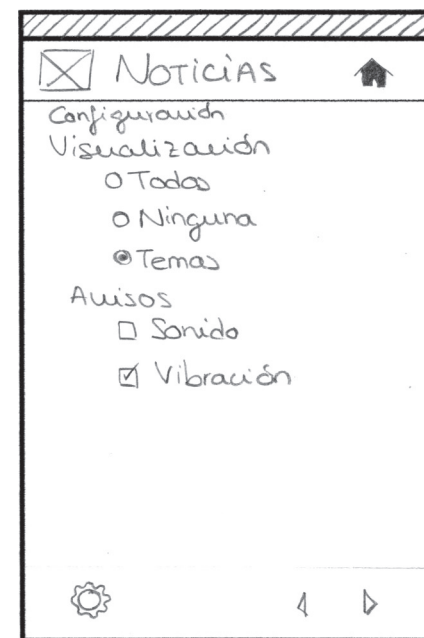 NOTICIAS
Configuración
Visualización
Todas
Ninguna
Temas
Avisos
Sonido
Vibración